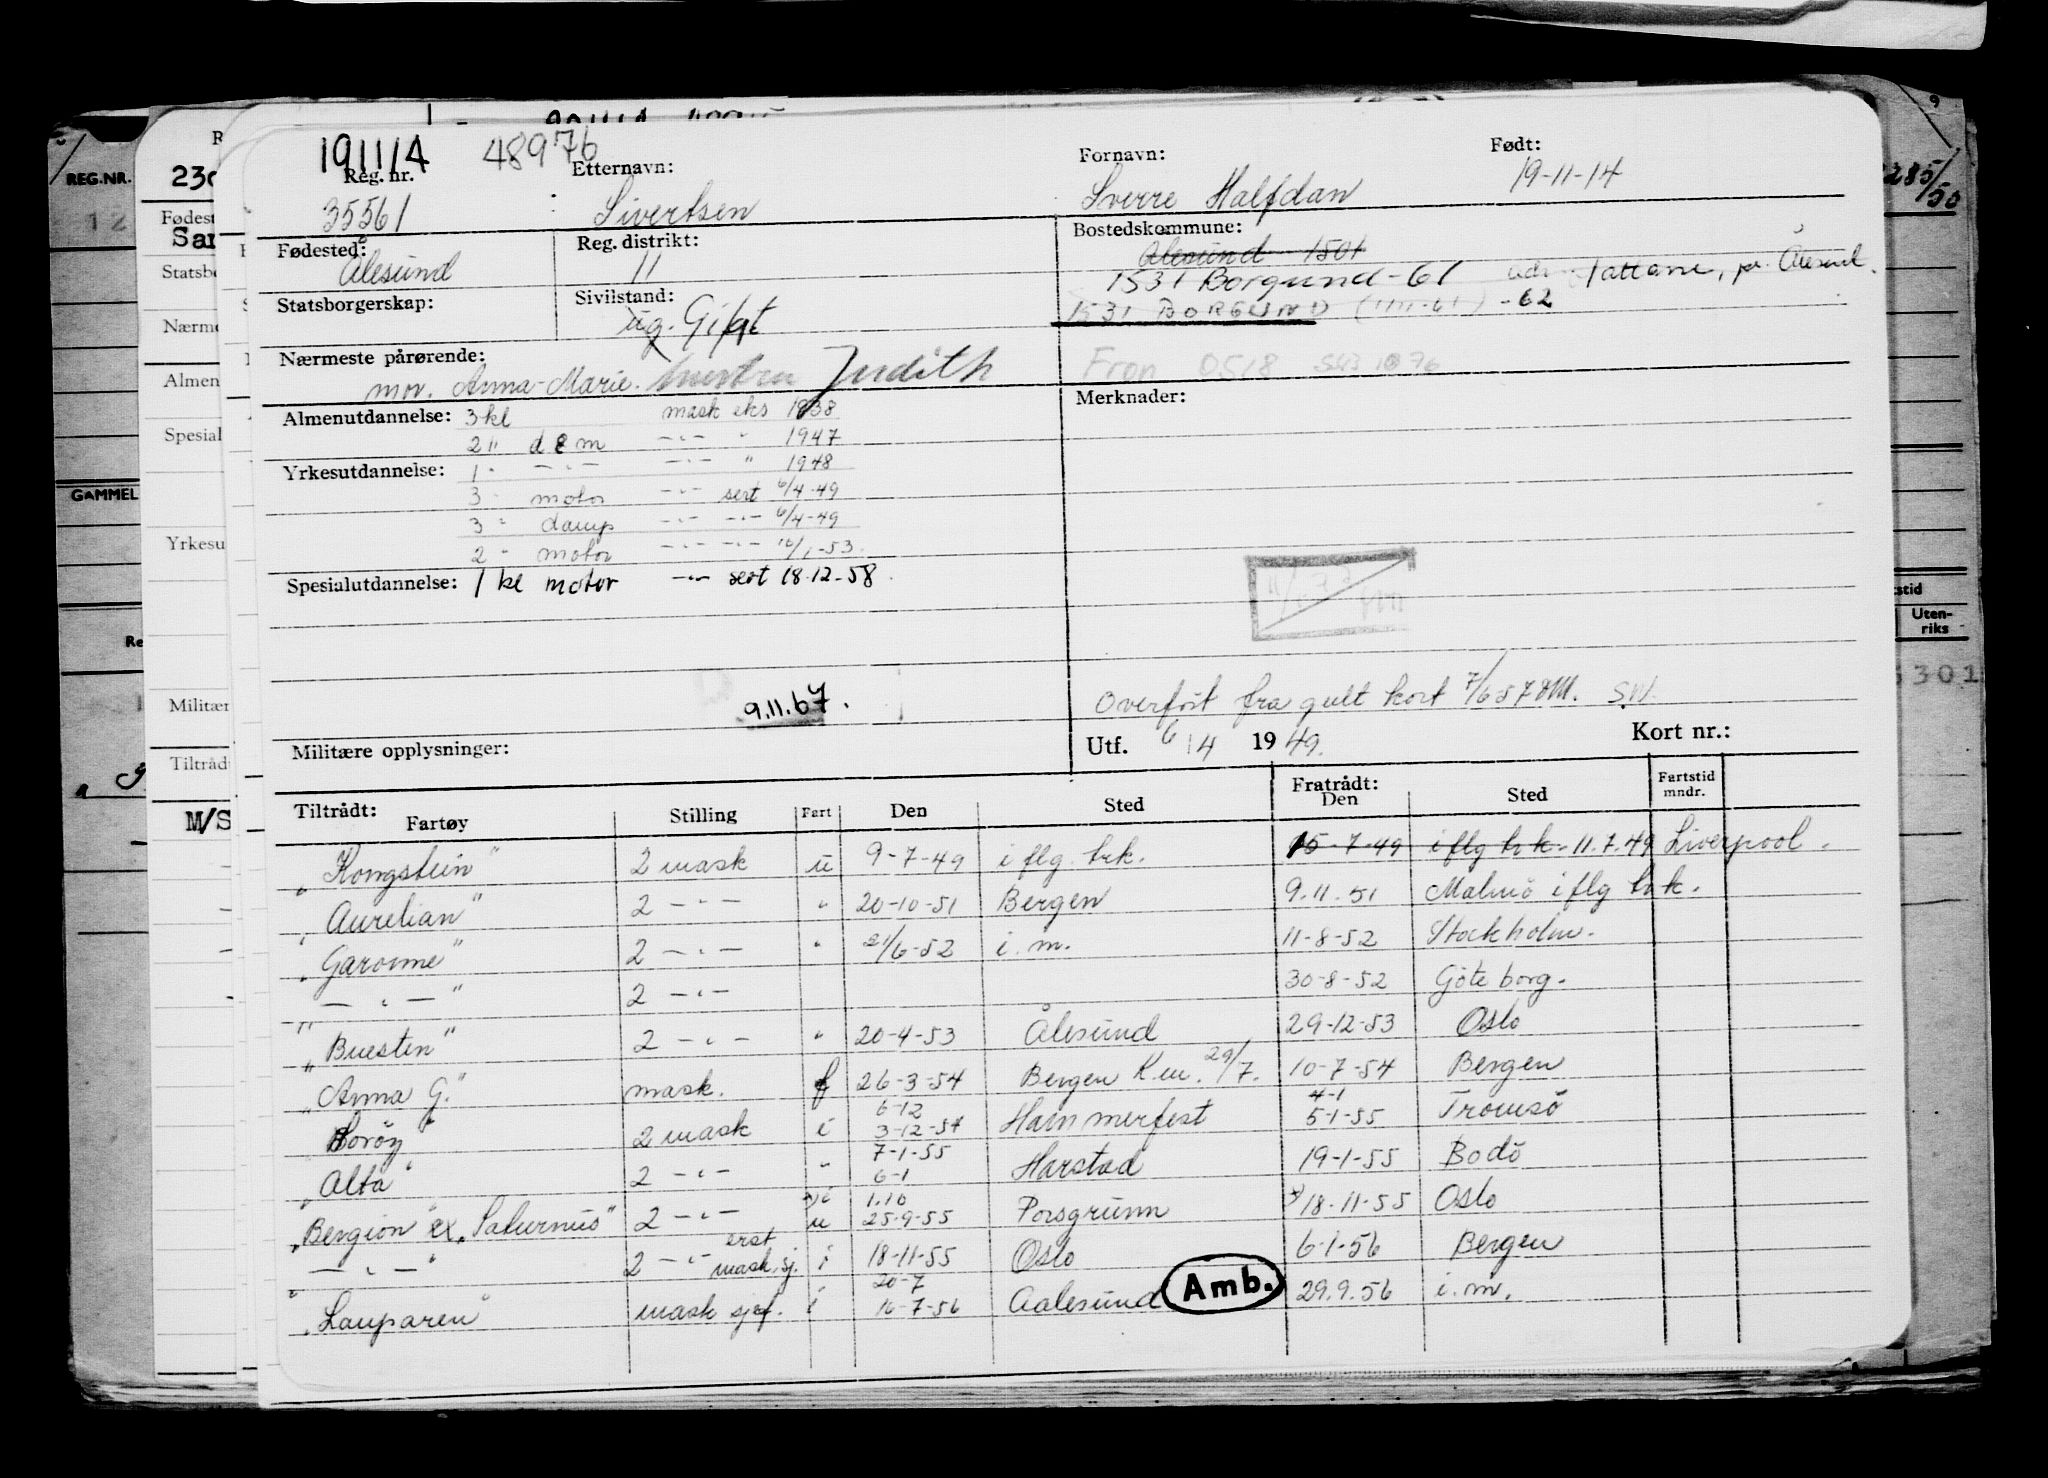 191114 48976
Reg. nr. Etternavn: Fornavn: Født:
35561 Sivertsen Sverre Halfdan 19-11-14
Fødested: Reg. distrikt: Bostedskommune:
Ålesund 11 Ålesund 1501
1531 Borgund - 61
Statsborgerskap: Sivilstand: 1531 BORGUND (1111-61) -62
ug. Gift
Nærmeste pårørende: Fron 0518
mor. Anna-Marie. hustru Judith
Almenutdannelse: 3 kl mask eks 1938 Merknader:
2 " d & m -"- " 1947
Yrkesutdannelse: 1 " -"- -"- " 1948
3 " motor -"- sert 6/4-49
3 " damp -"- -"- 6/4-49
2 " motor -"- -"- 16/1-53.
Spesialutdannelse: 1 kl motor -"- sert 18.12-58.
9.11.67.
Overført fra gult kort 7/6 57
Militære opplysninger: Utf. 6/4 1949. Kort nr.:
Tiltrådt: Fartøy Stilling Fart Den Sted Fratrådt: Den Sted Fartstid mndr.
"Kongstein" 2 mask u 9-7-49 i flg. trk. 15-7-49 i flg trk. 11.7.49 Liverpool.
"Aurelian" 2 -"- " 20-10-51 Bergen 9.11.51 Malmö i flg trk.
"Garonne" 2 -"- " 21/6-52 i.m. 11-8-52 Stockholm.
" -"- " 2 -"- 30-8-52 Göteborg.
"Buesten" 2 -"- " 20-4-53 Ålesund 29-12-53 Oslo
"Anna G." mask. f 26-3-54 Bergen K.m. 29/7. 10-7-54 Bergen
"Sorøy" 2 mask i 6-12 3-12-54 Hammerfest 4-1 5-1-55 Tromsö
"Alta" 2 -"- " 7-1-55 6-1 Harstad 19-1-55 Bodö
"Bergion" ex "Saturnus" 2 -"- u 1.10 25-9-55 Porsgrunn 18-11-55 Oslo
" -"- " 2 -"- erst mask.sj. i 18-11-55 Oslo 6-1-56 Bergen
"Lauparen" mask sjef. i 20-7 16-7-56 Aalesund Amb. 29.9.56 i.m.
REG.NR.
GAMMEL
Utenriks